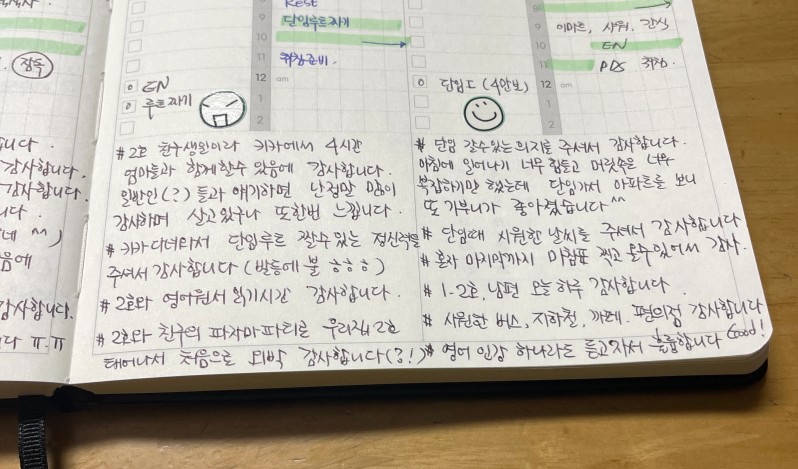 REST
9 단임루트짜기
10
11 취침준비.
12 am
1
2
EN
루트짜기
# 2호 친구생일이라 키카에서 4시간
엄마들과 함께할수 있음에 감사합니다.
일반인(?)들과 얘기하면 난 정말 많이
감사하며 살고있구나 또한번 느낍니다.
# 키카 다녀와서 단임루트 짤수있는 정신력을
주셔서 감사합니다 (발등에 불 ㅎㅎㅎ)
# 2호와 영어원서 읽기시간 감사합니다.
# 2호와 친구의 파자마파티로 우리집 2호
태어나서 처음으로 외박 감사합니다(?!)
9 이마트, 샤워, 간식
10 EN
11 PDS 취침.
12 am
1
2
단임도 (4안보)
# 단임 갈수있는 의지를 주셔서 감사합니다.
아침에 일어나기 너무 힘들고 머릿속은 너무
복잡하기만 했는데 단임가서 아파트를 보니
또 기부니가 좋아졌습니다^^
# 단임때 시원한 날씨를 주셔서 감사합니다
# 혼자 마지막까지 마침표 찍고 올수있어서 감사.
# 1-2호, 남편 오늘 하루 감사합니다.
# 시원한 버스, 지하철, 까페, 편의점 감사합니다
# 영어 인강 하나라도 듣고자서 훌륭합니다 Good!
잠톡
니다.
감사합니다.
감사합니다.
니다.
네 ^^)
음에
감사합니다.
다 ㅠ.ㅠ